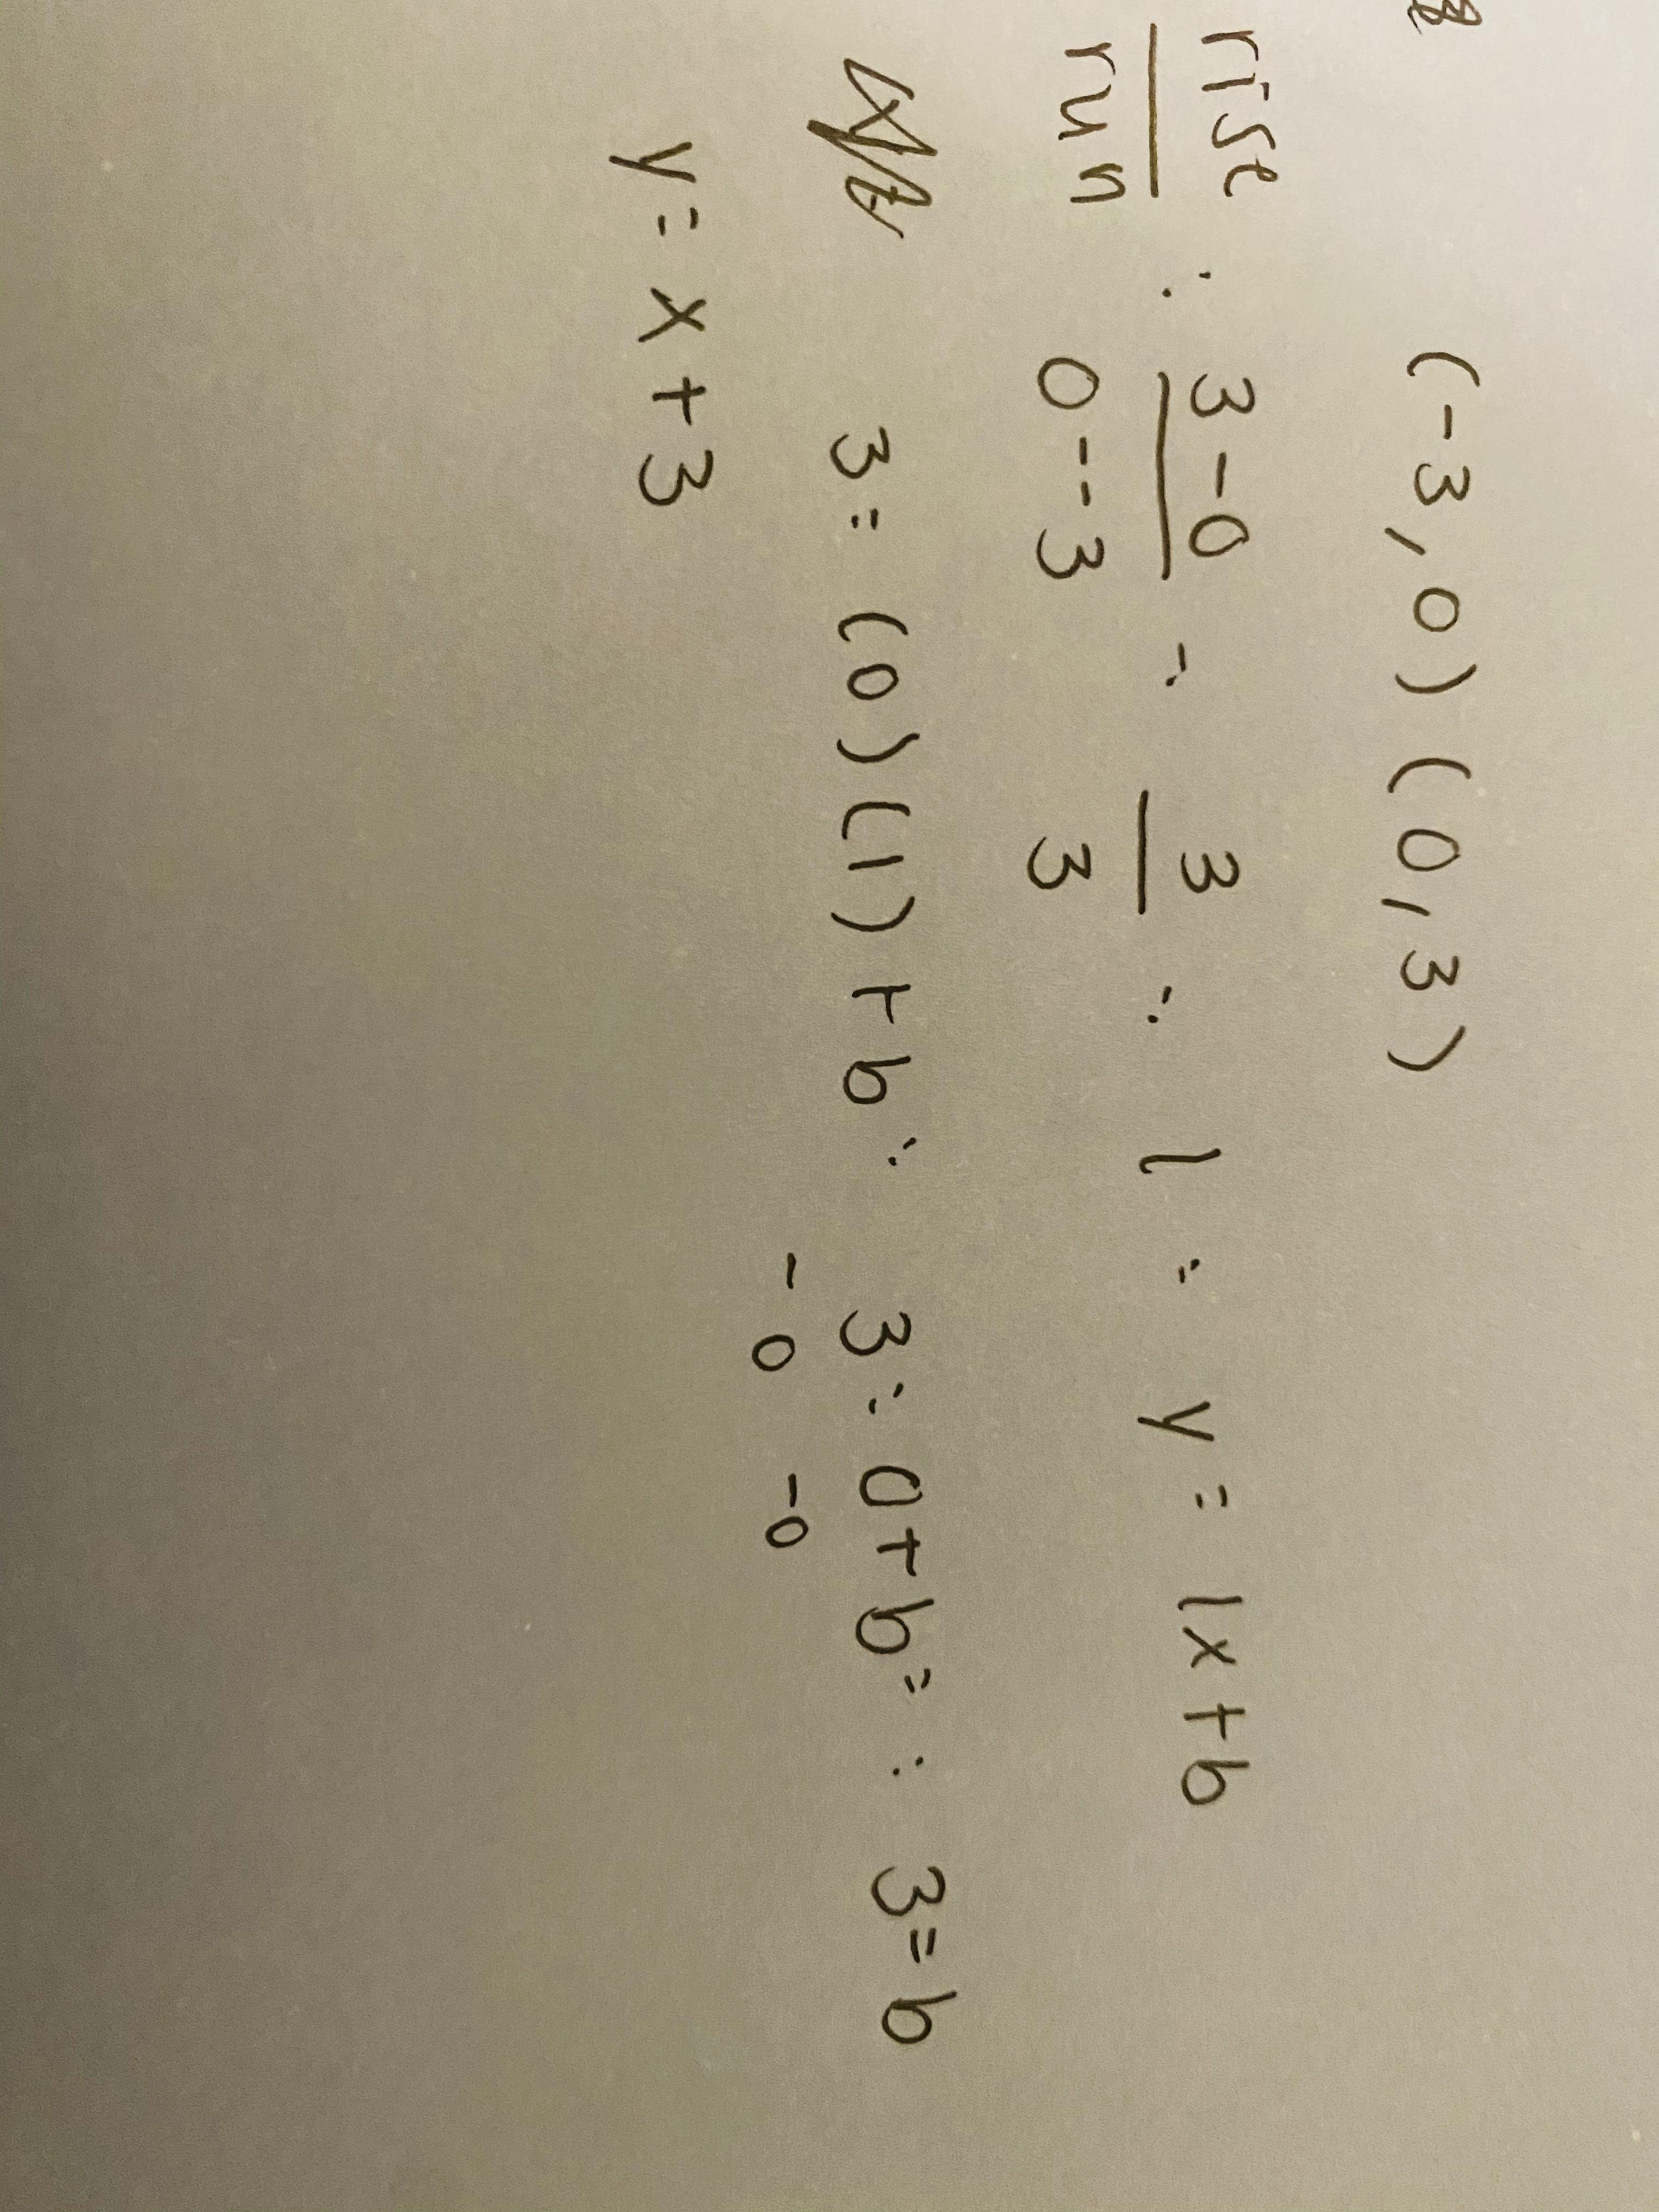 (-3,0) (0,3)
rise : 3-0 = 3 = 1 = y = 1x+b
run 0--3 3
3 = (0)(1)+b : 3 = 0+b = : 3=b
-0 -0
y = x+3